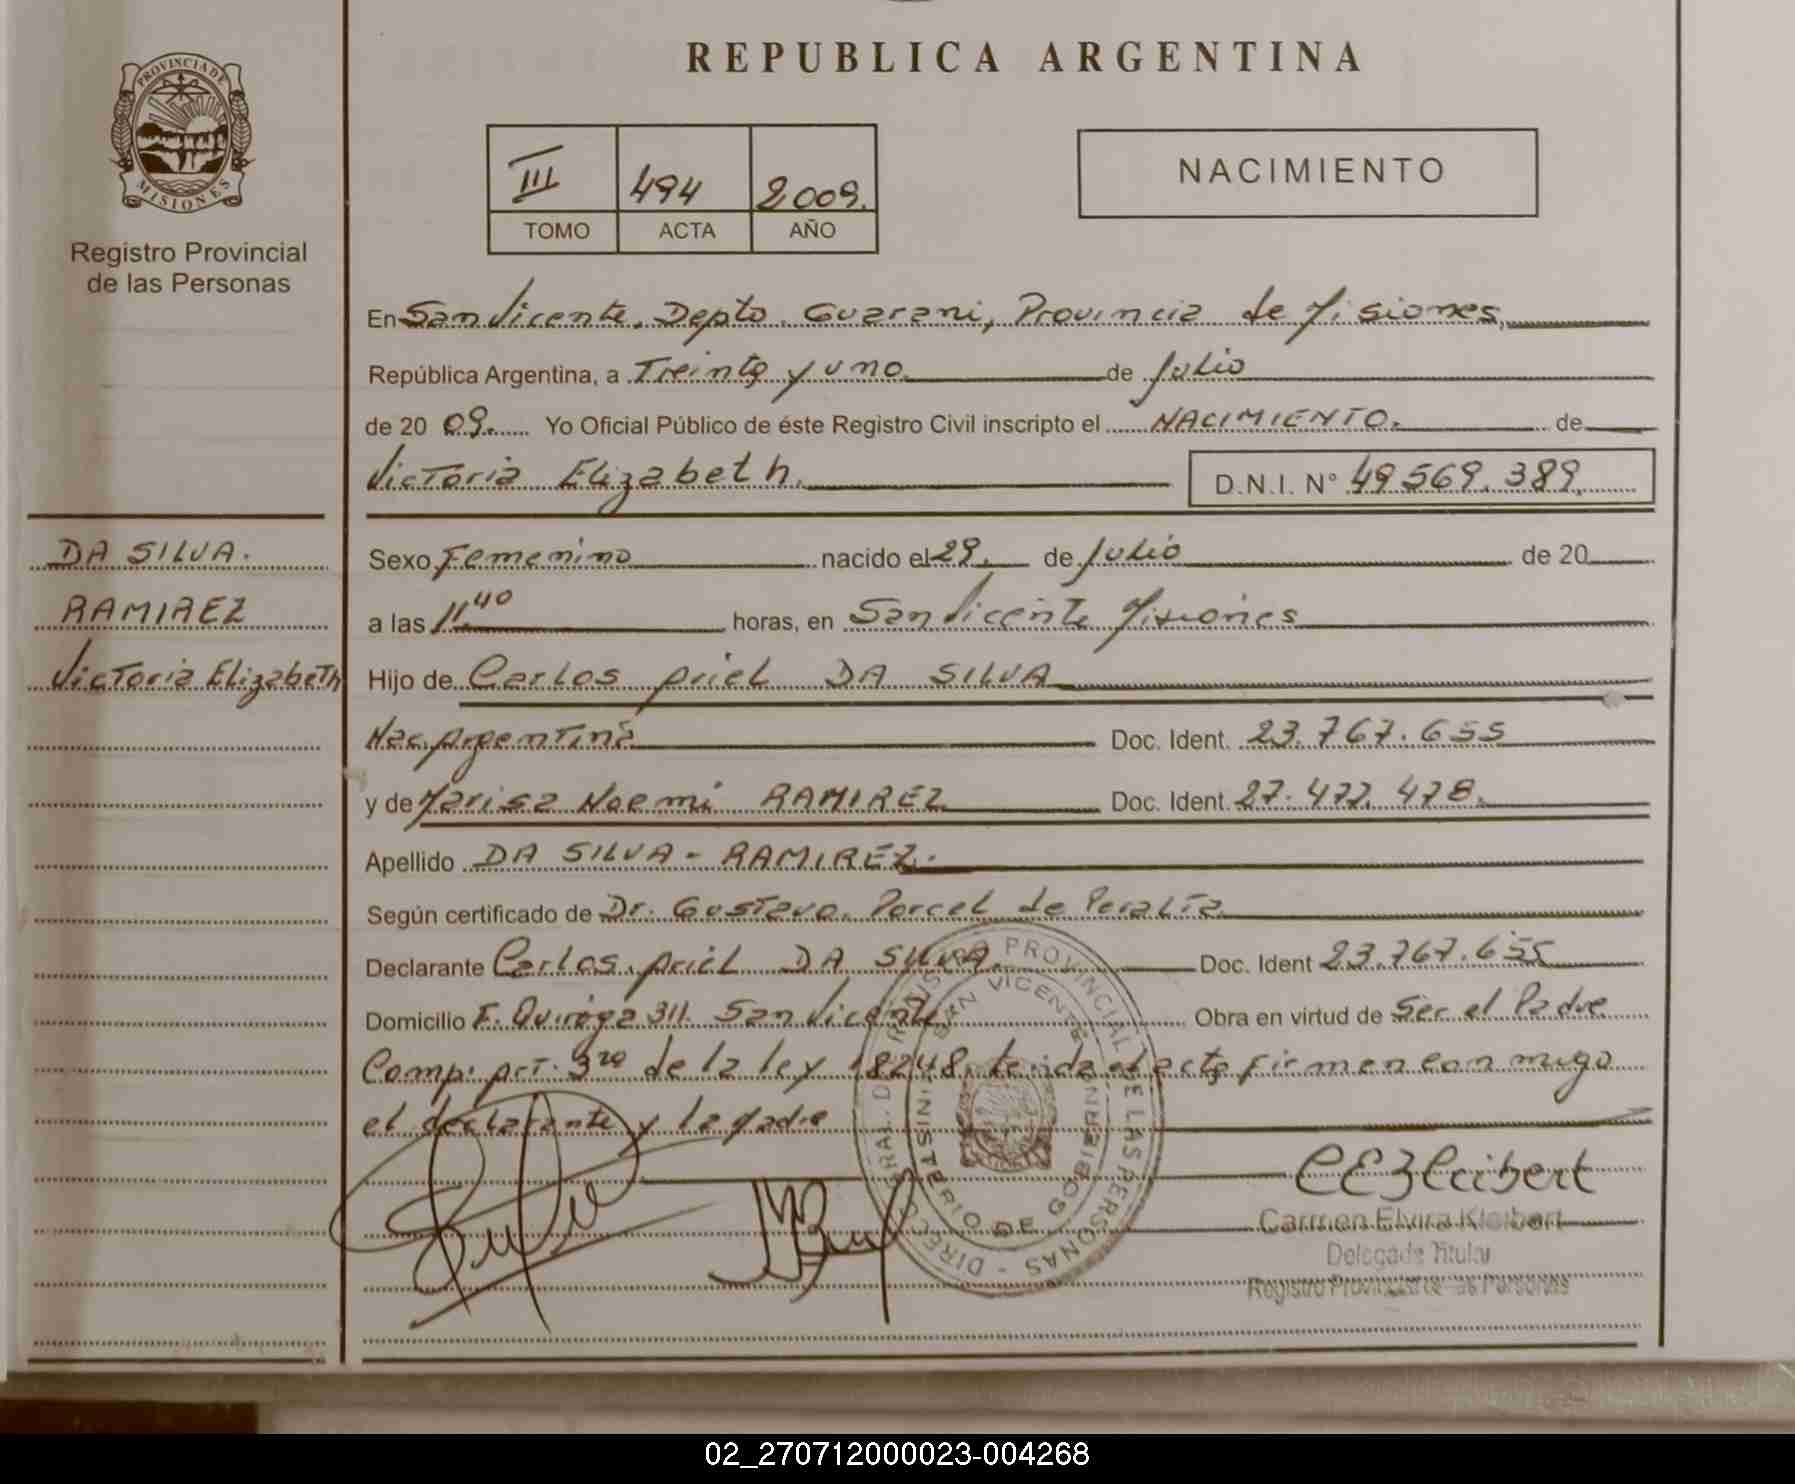 REPUBLICA ARGENTINA
PROVINCIA DE
MISIONES
Registro Provincial
de las Personas
III 494 2009.
TOMO ACTA AÑO
NACIMIENTO
En San Vicente, Depto. Guarani, Provincia de Misiones,
República Argentina, a Treinta y uno de Julio
de 20 09. Yo Oficial Público de éste Registro Civil inscripto el NACIMIENTO. de
Victoria Elizabeth. D.N.I. N° 49.569.389.
DA SILVA.
RAMIREZ
Victoria Elizabeth
Sexo Femenino nacido el 29. de Julio de 20
a las 11.40 horas, en San Vicente Misiones
Hijo de Carlos Ariel DA SILVA
Nac. Argentina Doc. Ident. 23.767.655
y de Marisa Noemi RAMIREZ Doc. Ident. 27.477.478.
Apellido DA SILVA - RAMIREZ.
Según certificado de Dr. Gustavo Porcel de Peralta
Declarante Carlos Ariel DA SILVA. Doc. Ident 23.767.655
Domicilio F. Quiroga 311. San Vicente. Obra en virtud de Ser el Padre
Comp. Art. 3ro de la ley 18248. Leida el acta firmen con migo
el declarante y la Madre
DIRECC. GRAL. DEL REGISTRO PROVINCIAL DE LAS PERSONAS -
SAN VICENTE
MINISTERIO DE GOBIERNO
CEKleibert
Carmen Elvira Kleibert
Delegada Titular
Registro Provincial de las Personas
02_270712000023-004268